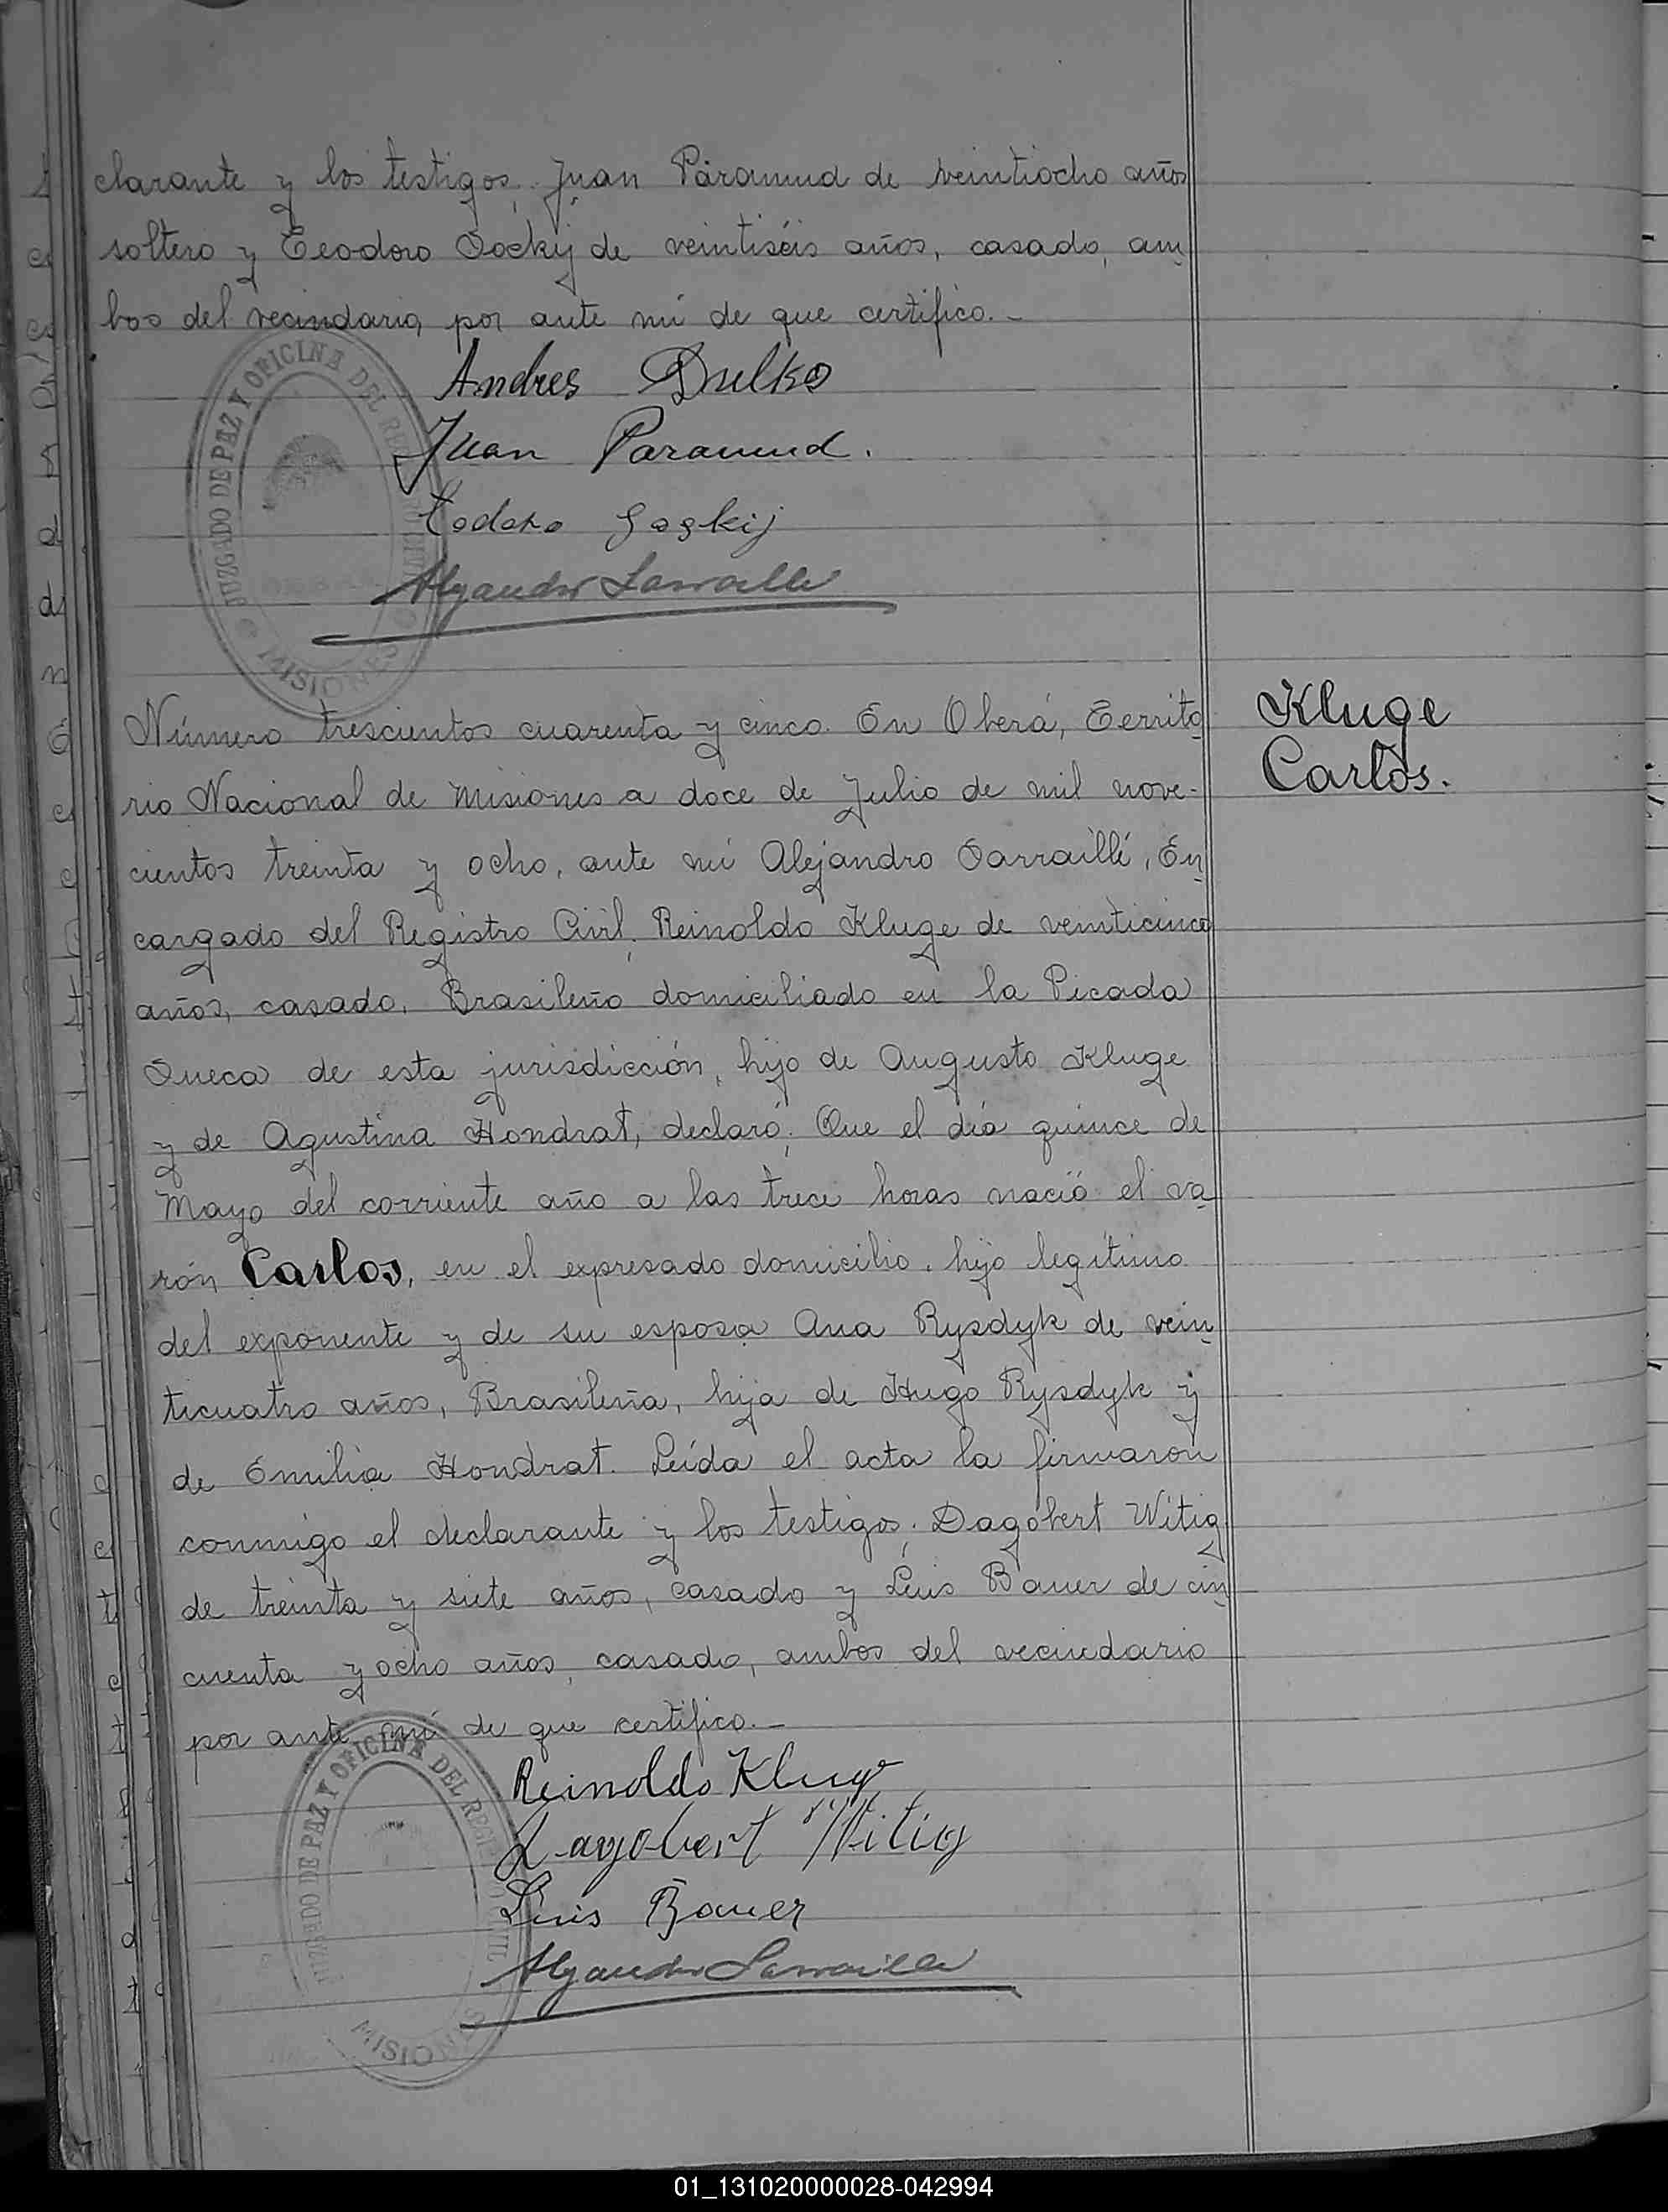 clarante y los testigos, Juan Paramud de veintiocho años
soltero y Teodoro Socky de veintiséis años, casado, am_
bos del vecindario, por ante mí de que certifico.-
Andres Dulko
Juan Paramud.
JUZGADO DE PAZ Y OFICINA DEL
MISIONES
Número trescientos cuarenta y cinco. En Oberá, Territo_
rio Nacional de Misiones a doce de Julio de mil nove-
cientos treinta y ocho, ante mí Alejandro Sarraillé, En_
cargado del Registro Civil, Reinoldo Kluge de veinticinco
años, casado, Brasileño domiciliado en la Picada
Sueca de esta jurisdicción, hijo de Augusto Kluge
y de Agustina Hondrat, declaró: Que el día quince de
Mayo del corriente año a las trece horas nació el va_
rón Carlos, en el expresado domicilio, hijo legítimo
del exponente y de su esposa Ana Rysdyk de vein_
ticuatro años, Brasileña, hija de Hugo Rysdyk y
de Emilia Hondrat. Leída el acta la firmaron
conmigo el declarante y los testigos, Dagobert Witig
de treinta y siete años, casado y Luis Bauer de cin_
cuenta y ocho años, casado, ambos del vecindario
por ante mí de que certifico.-
Kluge
Carlos.
Reinoldo Kluge
Dagobert Witig
Luis Bauer
JUZGADO DE PAZ Y OFICINA DEL
MISIONES
01_131020000028-042994